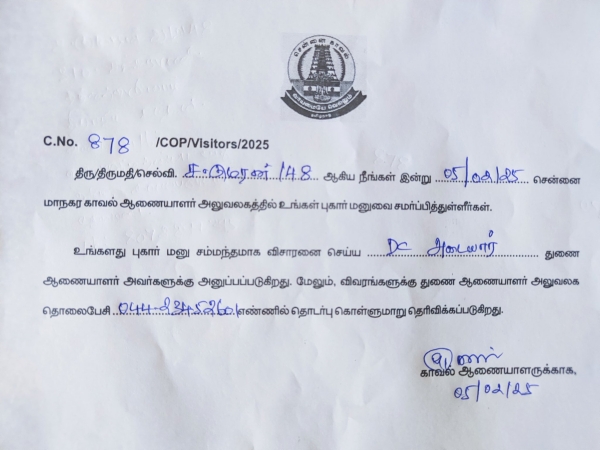 சென்னை காவல்
வாய்மையே வெல்லும்
C.No. 878 /COP/Visitors/2025
திரு/திருமதி/செல்வி. ச.குமரன் /48 ஆகிய நீங்கள் இன்று 05/02/25 சென்னை
மாநகர காவல் ஆணையாளர் அலுவலகத்தில் உங்கள் புகார் மனுவை சமர்ப்பித்துள்ளீர்கள்.
உங்களது புகார் மனு சம்மந்தமாக விசாரனை செய்ய DC அடையார் துணை
ஆணையாளர் அவர்களுக்கு அனுப்பப்படுகிறது. மேலும், விவரங்களுக்கு துணை ஆணையாளர் அலுவலக
தொலைபேசி எண்ணில் தொடர்பு கொள்ளுமாறு தெரிவிக்கப்படுகிறது.
காவல் ஆணையாளருக்காக,
05/02/25